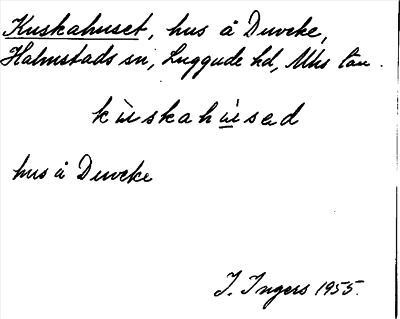 Kuskahuset, hus å Duveke,
Halmstads sn, Luggude hd, Mhs län.
kùskahùsəd
hus å Duveke
I. Ingers 1955.